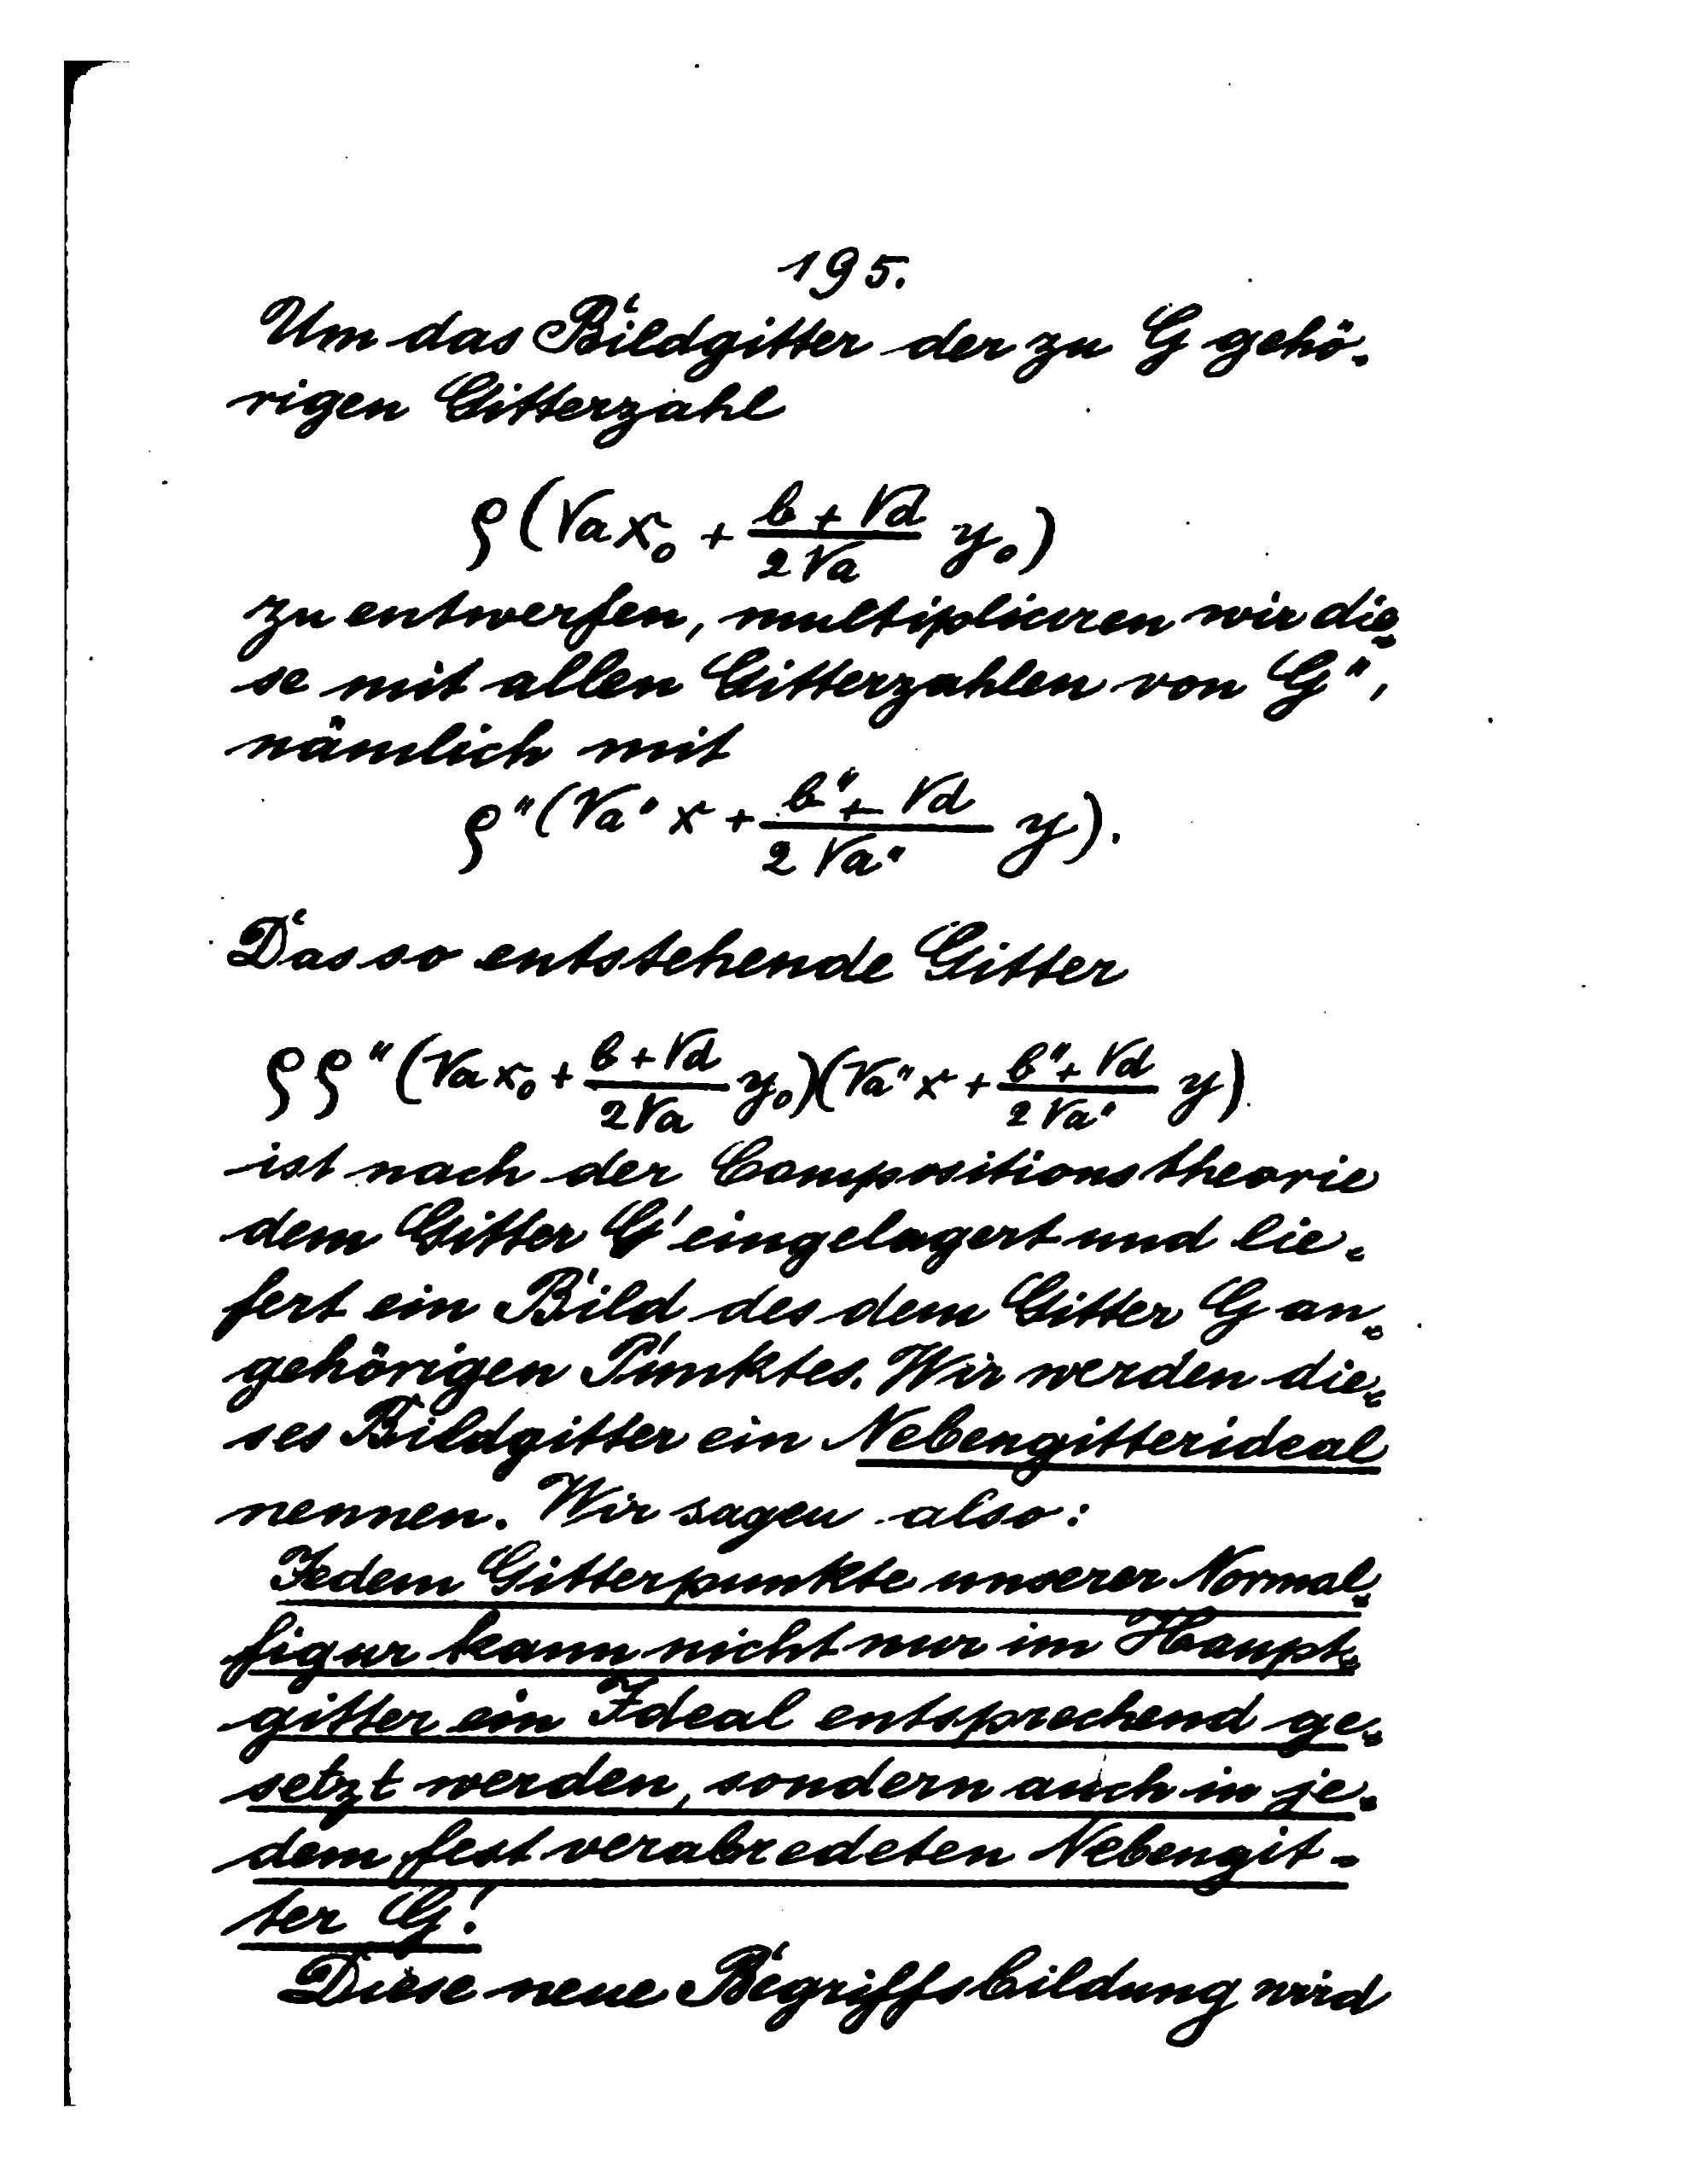 195.
Um das Bildgitter der zu G gehö-
rigen Gitterzahl
ϱ(√a x₀ + (b + √d)/(2√a) y₀)
zu entwerfen, multipliciren wir die-
se mit allen Gitterzahlen von G",
nämlich mit
ϱ"(√a" x + (b" + √d)/(2√a") y).
Das so entstehende Gitter
ϱϱ"(√a x₀ + (b + √d)/(2√a) y₀)(√a" x + (b" + √d)/(2√a") y)
ist nach der Compositionstheorie
dem Gitter G' eingelagert und lie-
fert ein Bild des dem Gitter G an-
gehörigen Punktes. Wir werden die-
ses Bildgitter ein Nebengitterideal
nennen. Wir sagen also:
Jedem Gitterpunkte unserer Normal-
figur kann nicht nur im Haupt-
gitter ein Ideal entsprechend ge-
setzt werden, sondern auch in je-
dem fest verabredeten Nebengit-
ter G'.
Diese neue Begriffsbildung wird